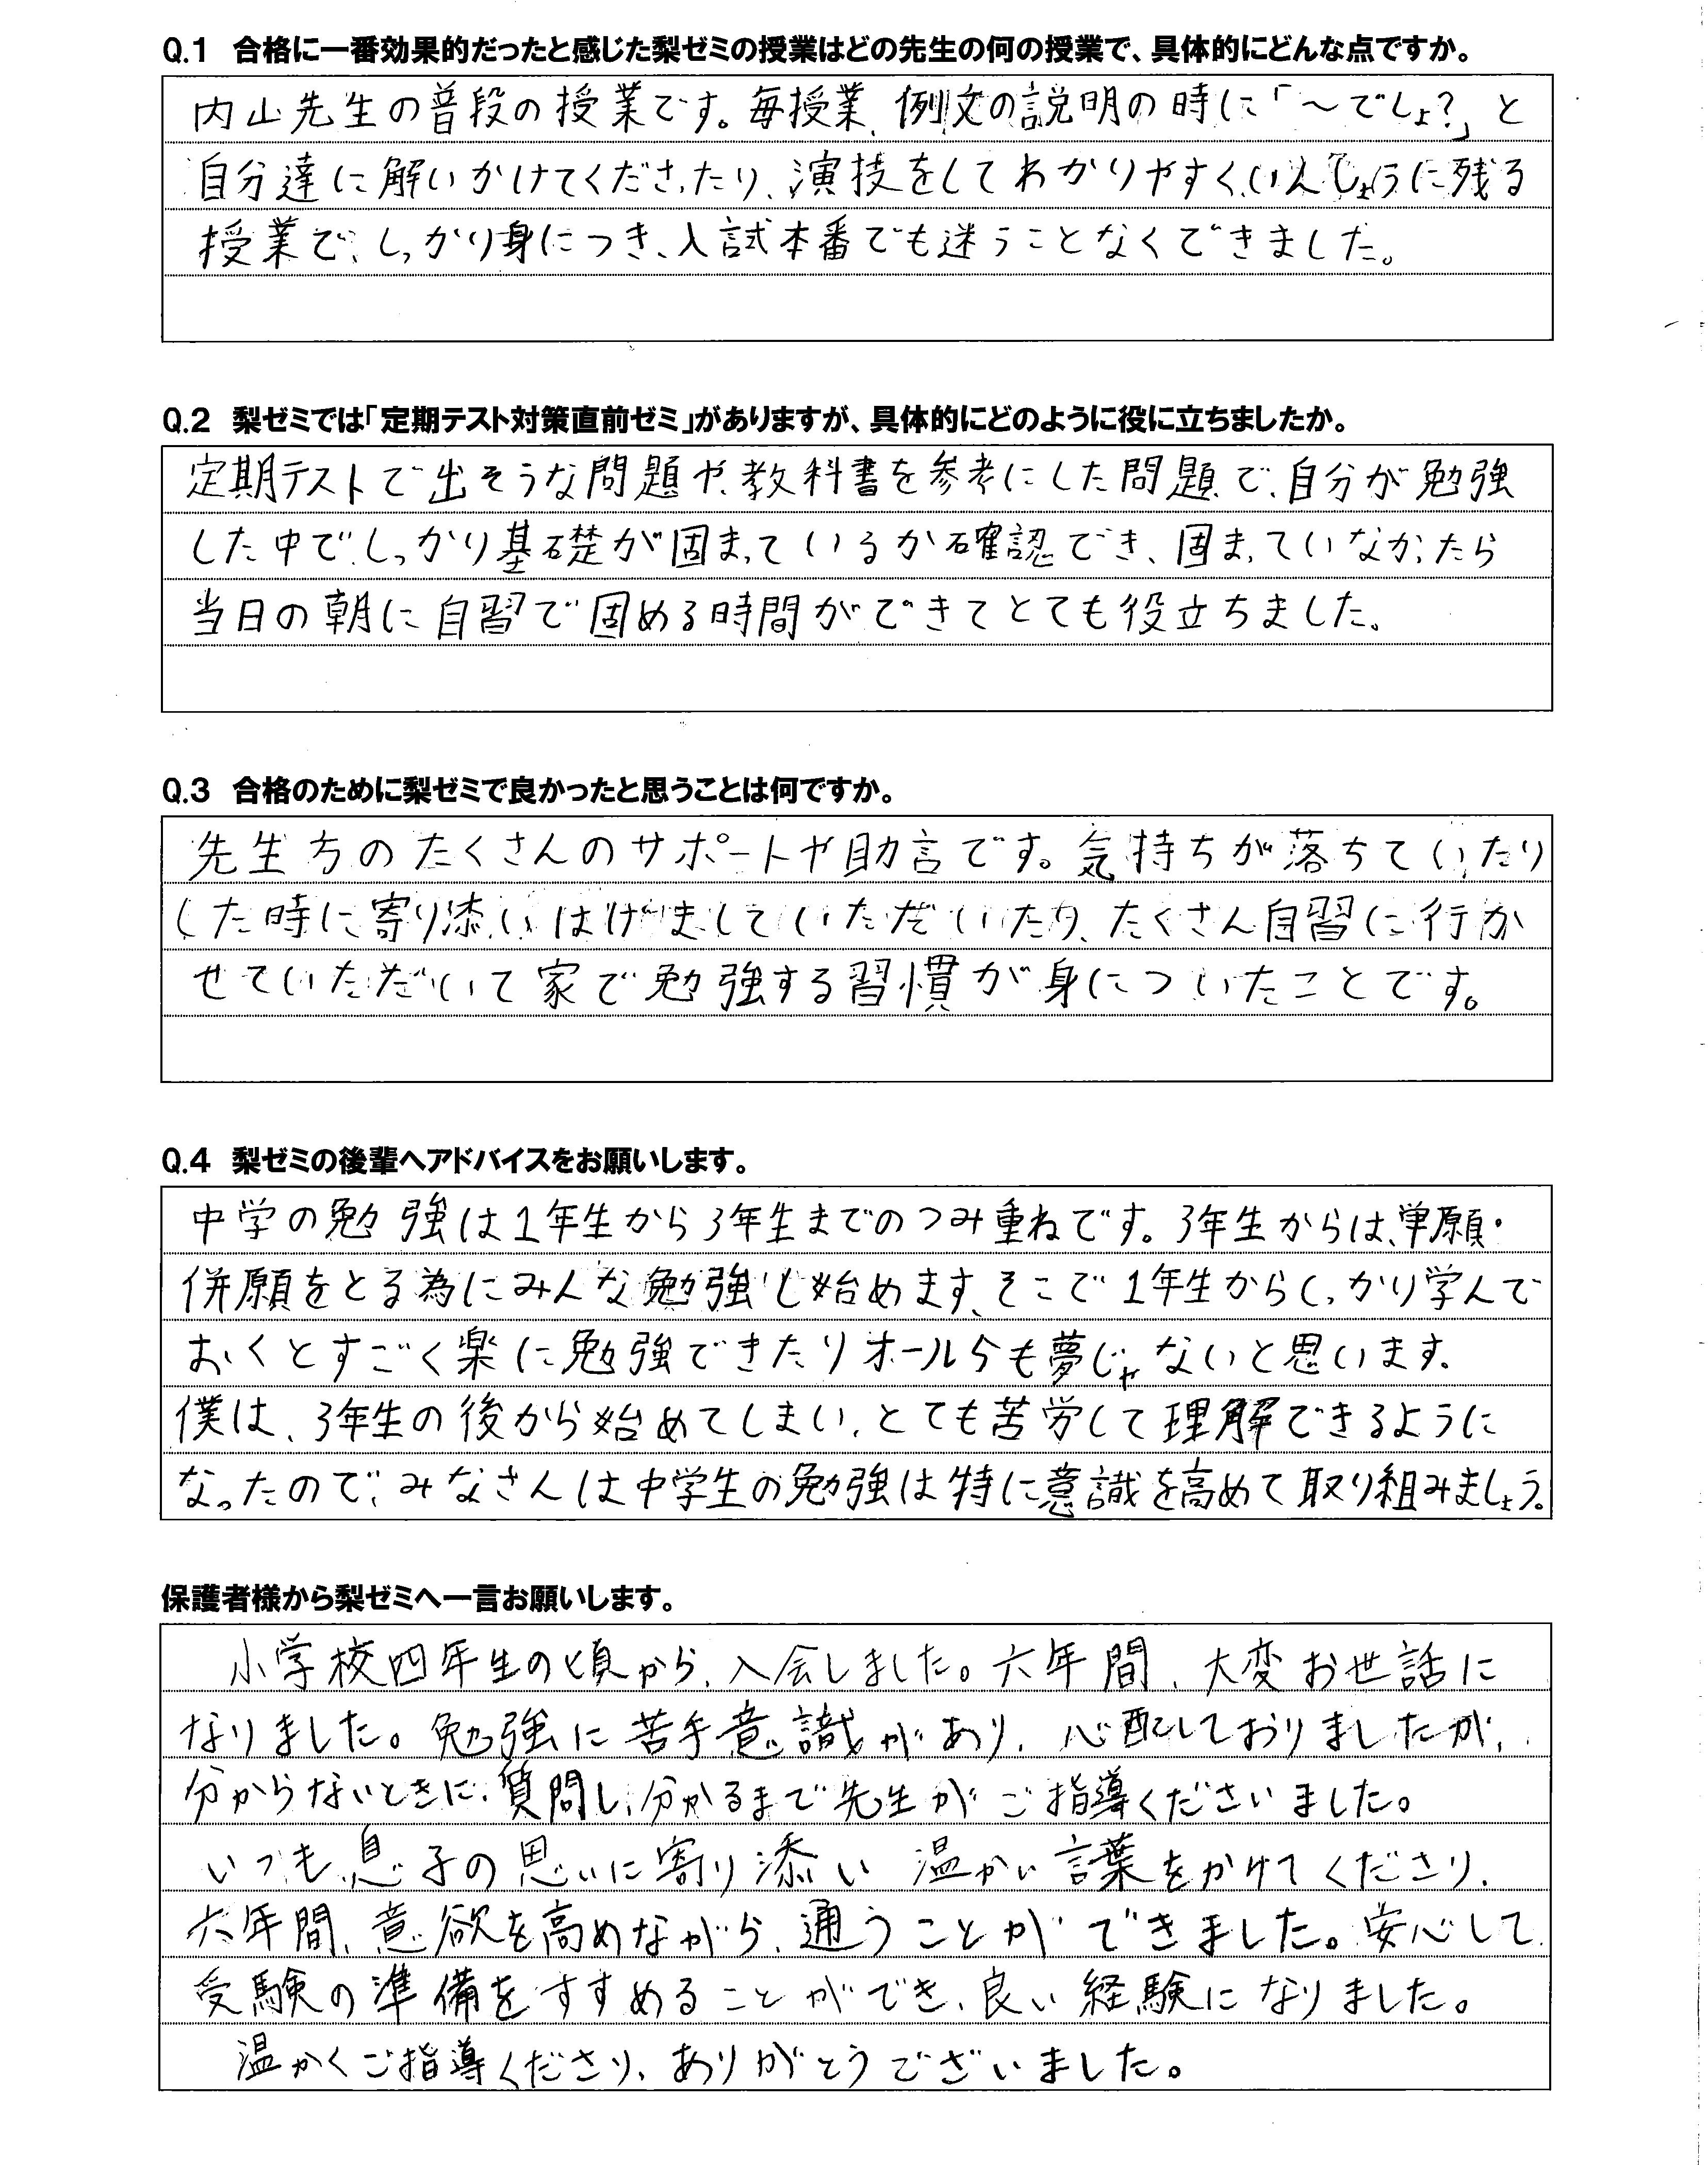 Q.1 合格に一番効果的だったと感じた梨ゼミの授業はどの先生の何の授業で、具体的にどんな点ですか。
内山先生の普段の授業です。毎授業、例文の説明の時に「～でしょ?」と
自分達に解いかけてくださったり、演技をしてわかりやすく、いんしょうに残る
授業で、しっかり身につき、入試本番でも迷うことなくできました。
Q.2 梨ゼミでは「定期テスト対策直前ゼミ」がありますが、具体的にどのように役に立ちましたか。
定期テストで出そうな問題や、教科書を参考にした問題で、自分が勉強
した中で、しっかり基礎が固まっているか確認でき、固まっていなかったら
当日の朝に自習で固める時間ができてとても役立ちました。
Q.3 合格のために梨ゼミで良かったと思うことは何ですか。
先生方のたくさんのサポートや助言です。気持ちが落ちていたり
した時に寄り添い、はげましていただいたり、たくさん自習に行か
せていただいて家で勉強する習慣が身についたことです。
Q.4 梨ゼミの後輩へアドバイスをお願いします。
中学の勉強は1年生から3年生までのつみ重ねです。3年生からは、単願・
併願をとる為にみんな勉強し始めます、そこで1年生からしっかり学んで
おくとすごく楽に勉強できたりオール5も夢じゃないと思います。
僕は、3年生の後から始めてしまい、とても苦労して理解できるように
なったので、みなさんは中学生の勉強は特に意識を高めて取り組みましょう。
保護者様から梨ゼミへ一言お願いします。
小学校四年生の頃から、入会しました。六年間、大変お世話に
なりました。勉強に苦手意識があり、心配しておりましたが、
分からないときに、質問し、分かるまで先生がご指導くださいました。
いつも息子の思いに寄り添い 温かい言葉をかけてくださり、
六年間、意欲を高めながら、通うことができました。安心して
受験の準備をすすめることができ、良い経験になりました。
温かくご指導くださり、ありがとうございました。